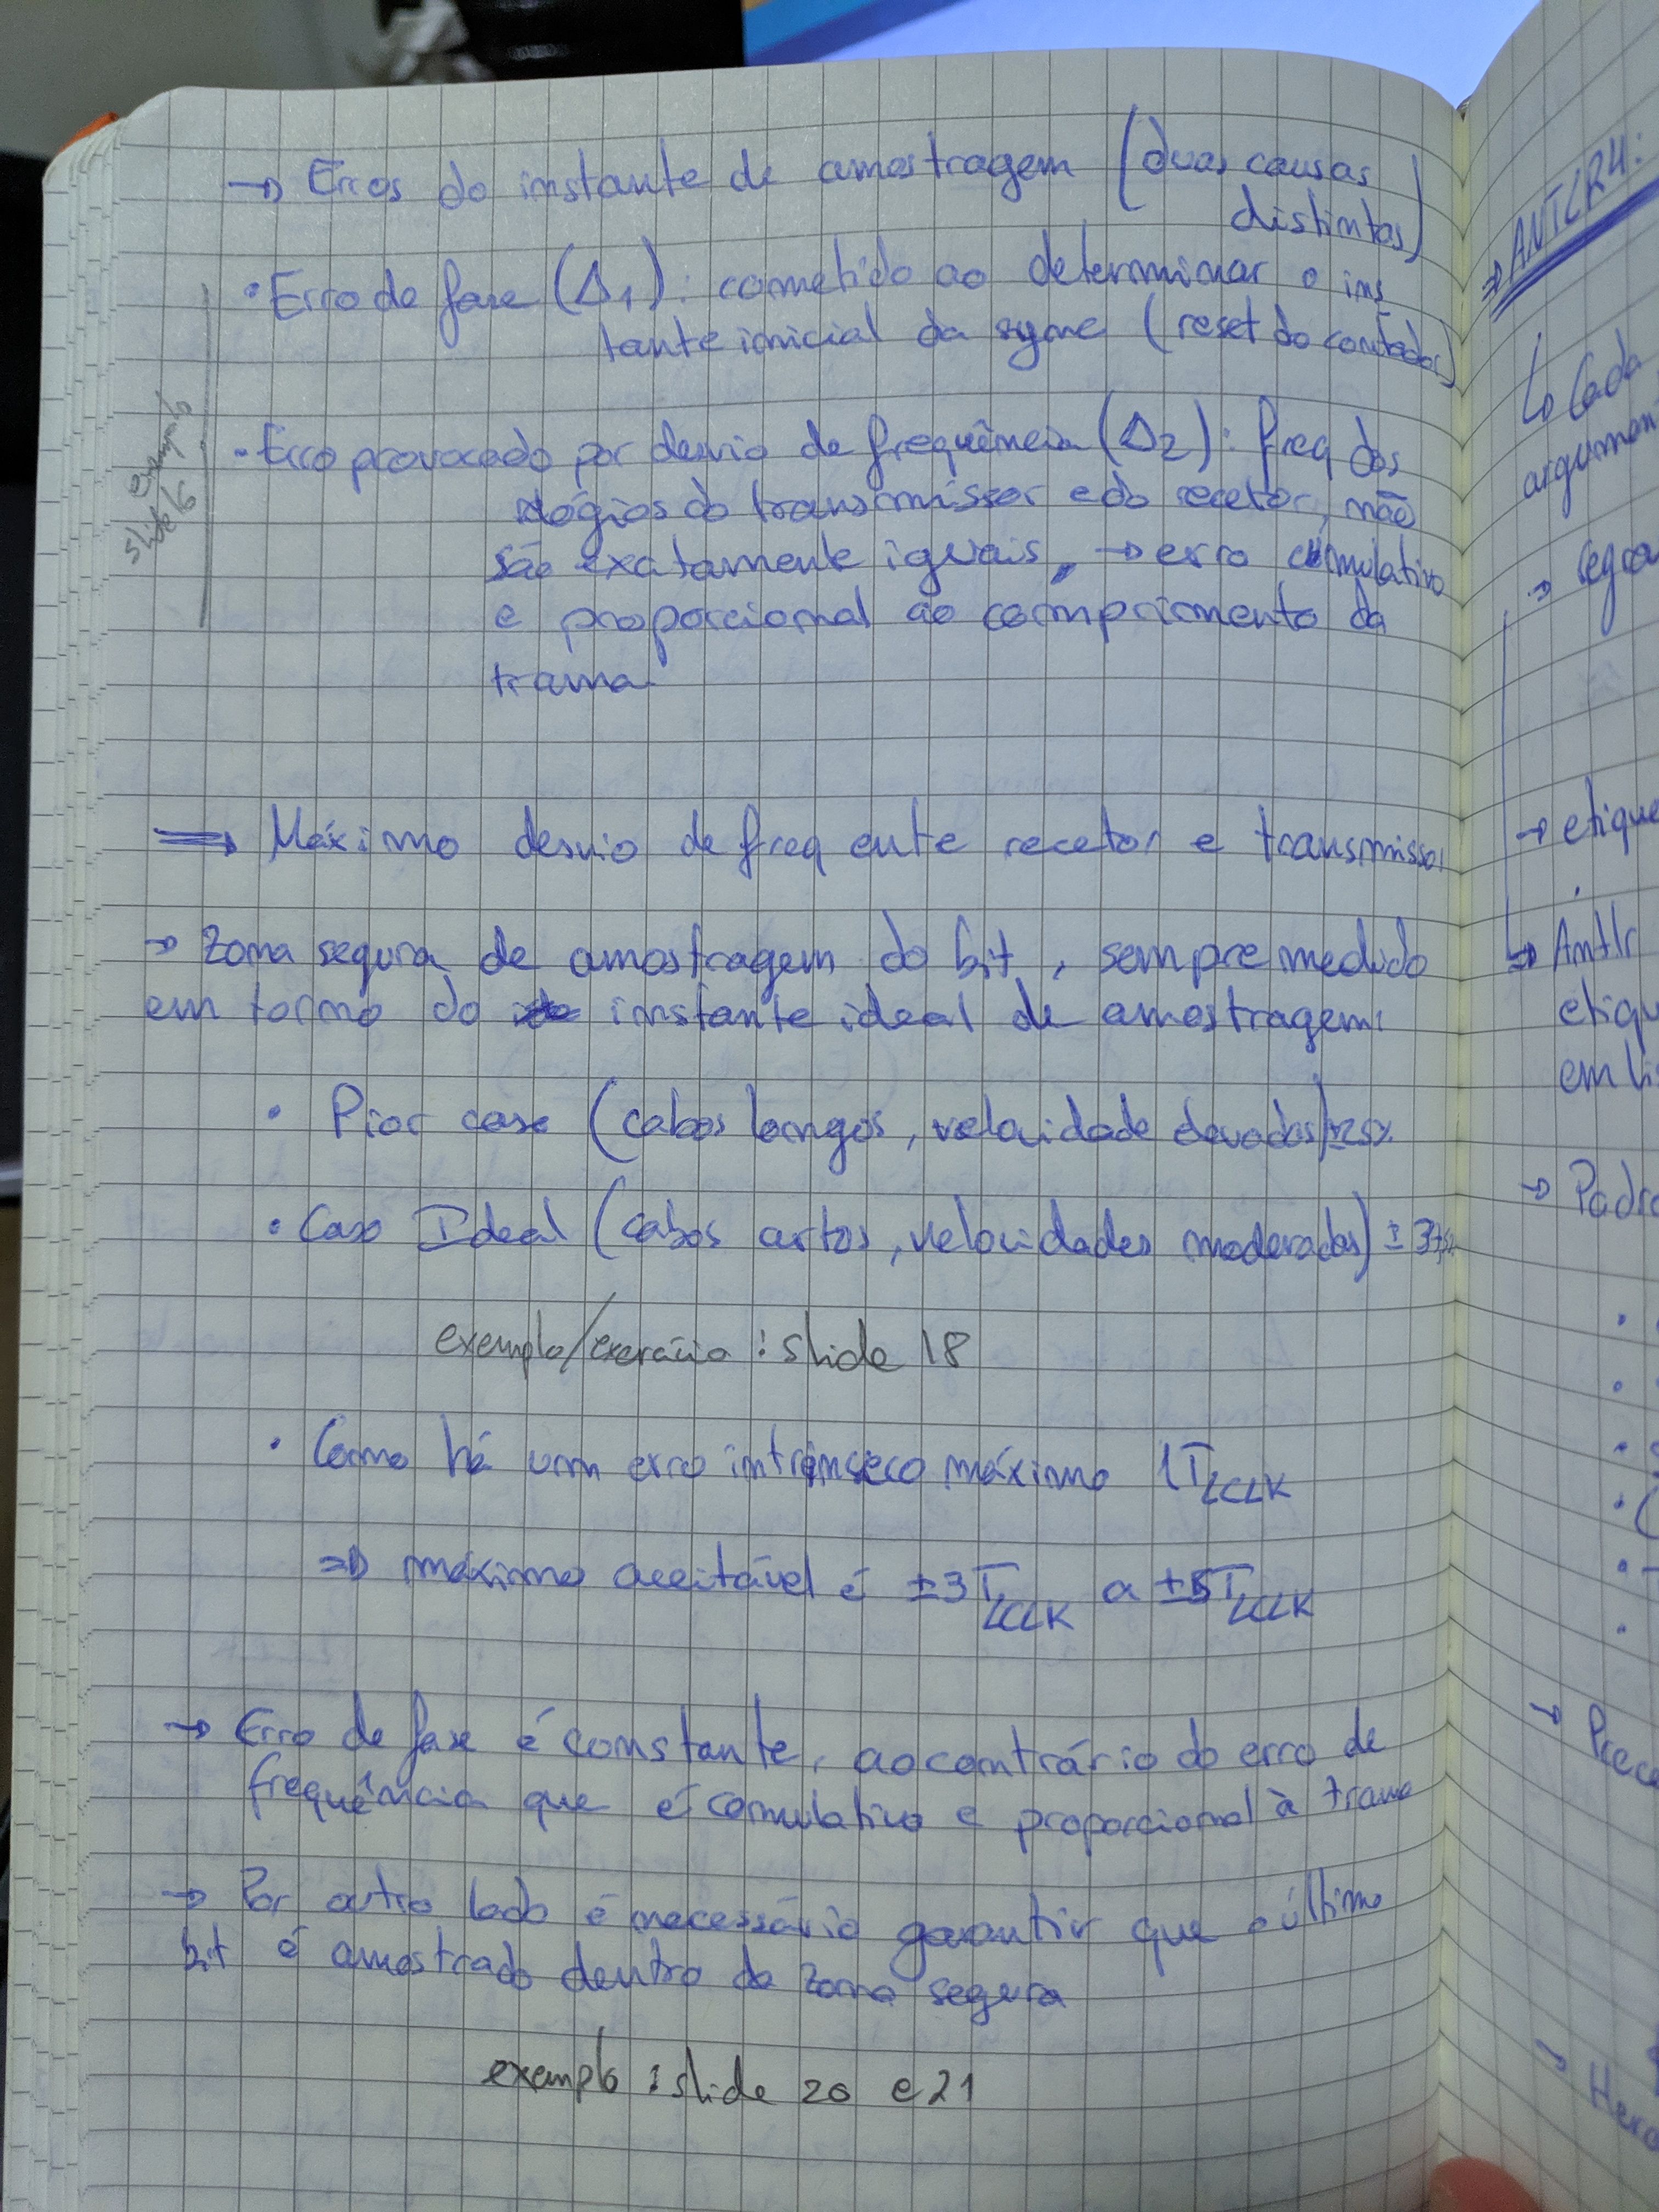 → Erros do instante de amostragem (duas causas
distintas)
• Erro de fase (Δ1): cometido ao determinar o ins
tante inicial da sync (reset do contador)
exemplo
slide 16
• Erro provocado por desvio de frequência (Δ2): freq dos
relógios do transmissor e do recetor, não
são exatamente iguais, → erro cumulativo
e proporcional ao comprimento da
trama
⇒ Máximo desvio de freq ente recetor e transmissor
→ Zona segura de amostragem do bit, sempre medido
em torno do instante ideal de amostragem:
• Pior caso (cabos longos, velocidade elevadas) ±25%
• Caso Ideal (cabos curtos, velocidades moderadas) ±
exemplo/exercício : slide 18
• Como há um erro intrínseco máximo 1T_LCLK
⇒ máximo aceitável é ±3T_LCLK a ±5T_LCLK
→ Erro de fase é constante, ao contrário do erro de
frequência que é comulativo e proporcional à trama
→ Por outro lado é necessário garantir que o último
bit é amostrado dentro da zona segura
exemplo : slide 20 e 21
⇒ ANTLR4:
↳ Cada
argumen
→ regra
→ etique
↳ Antlr
etiqu
em li
→ Padrõ
→ Prece
→ Hera